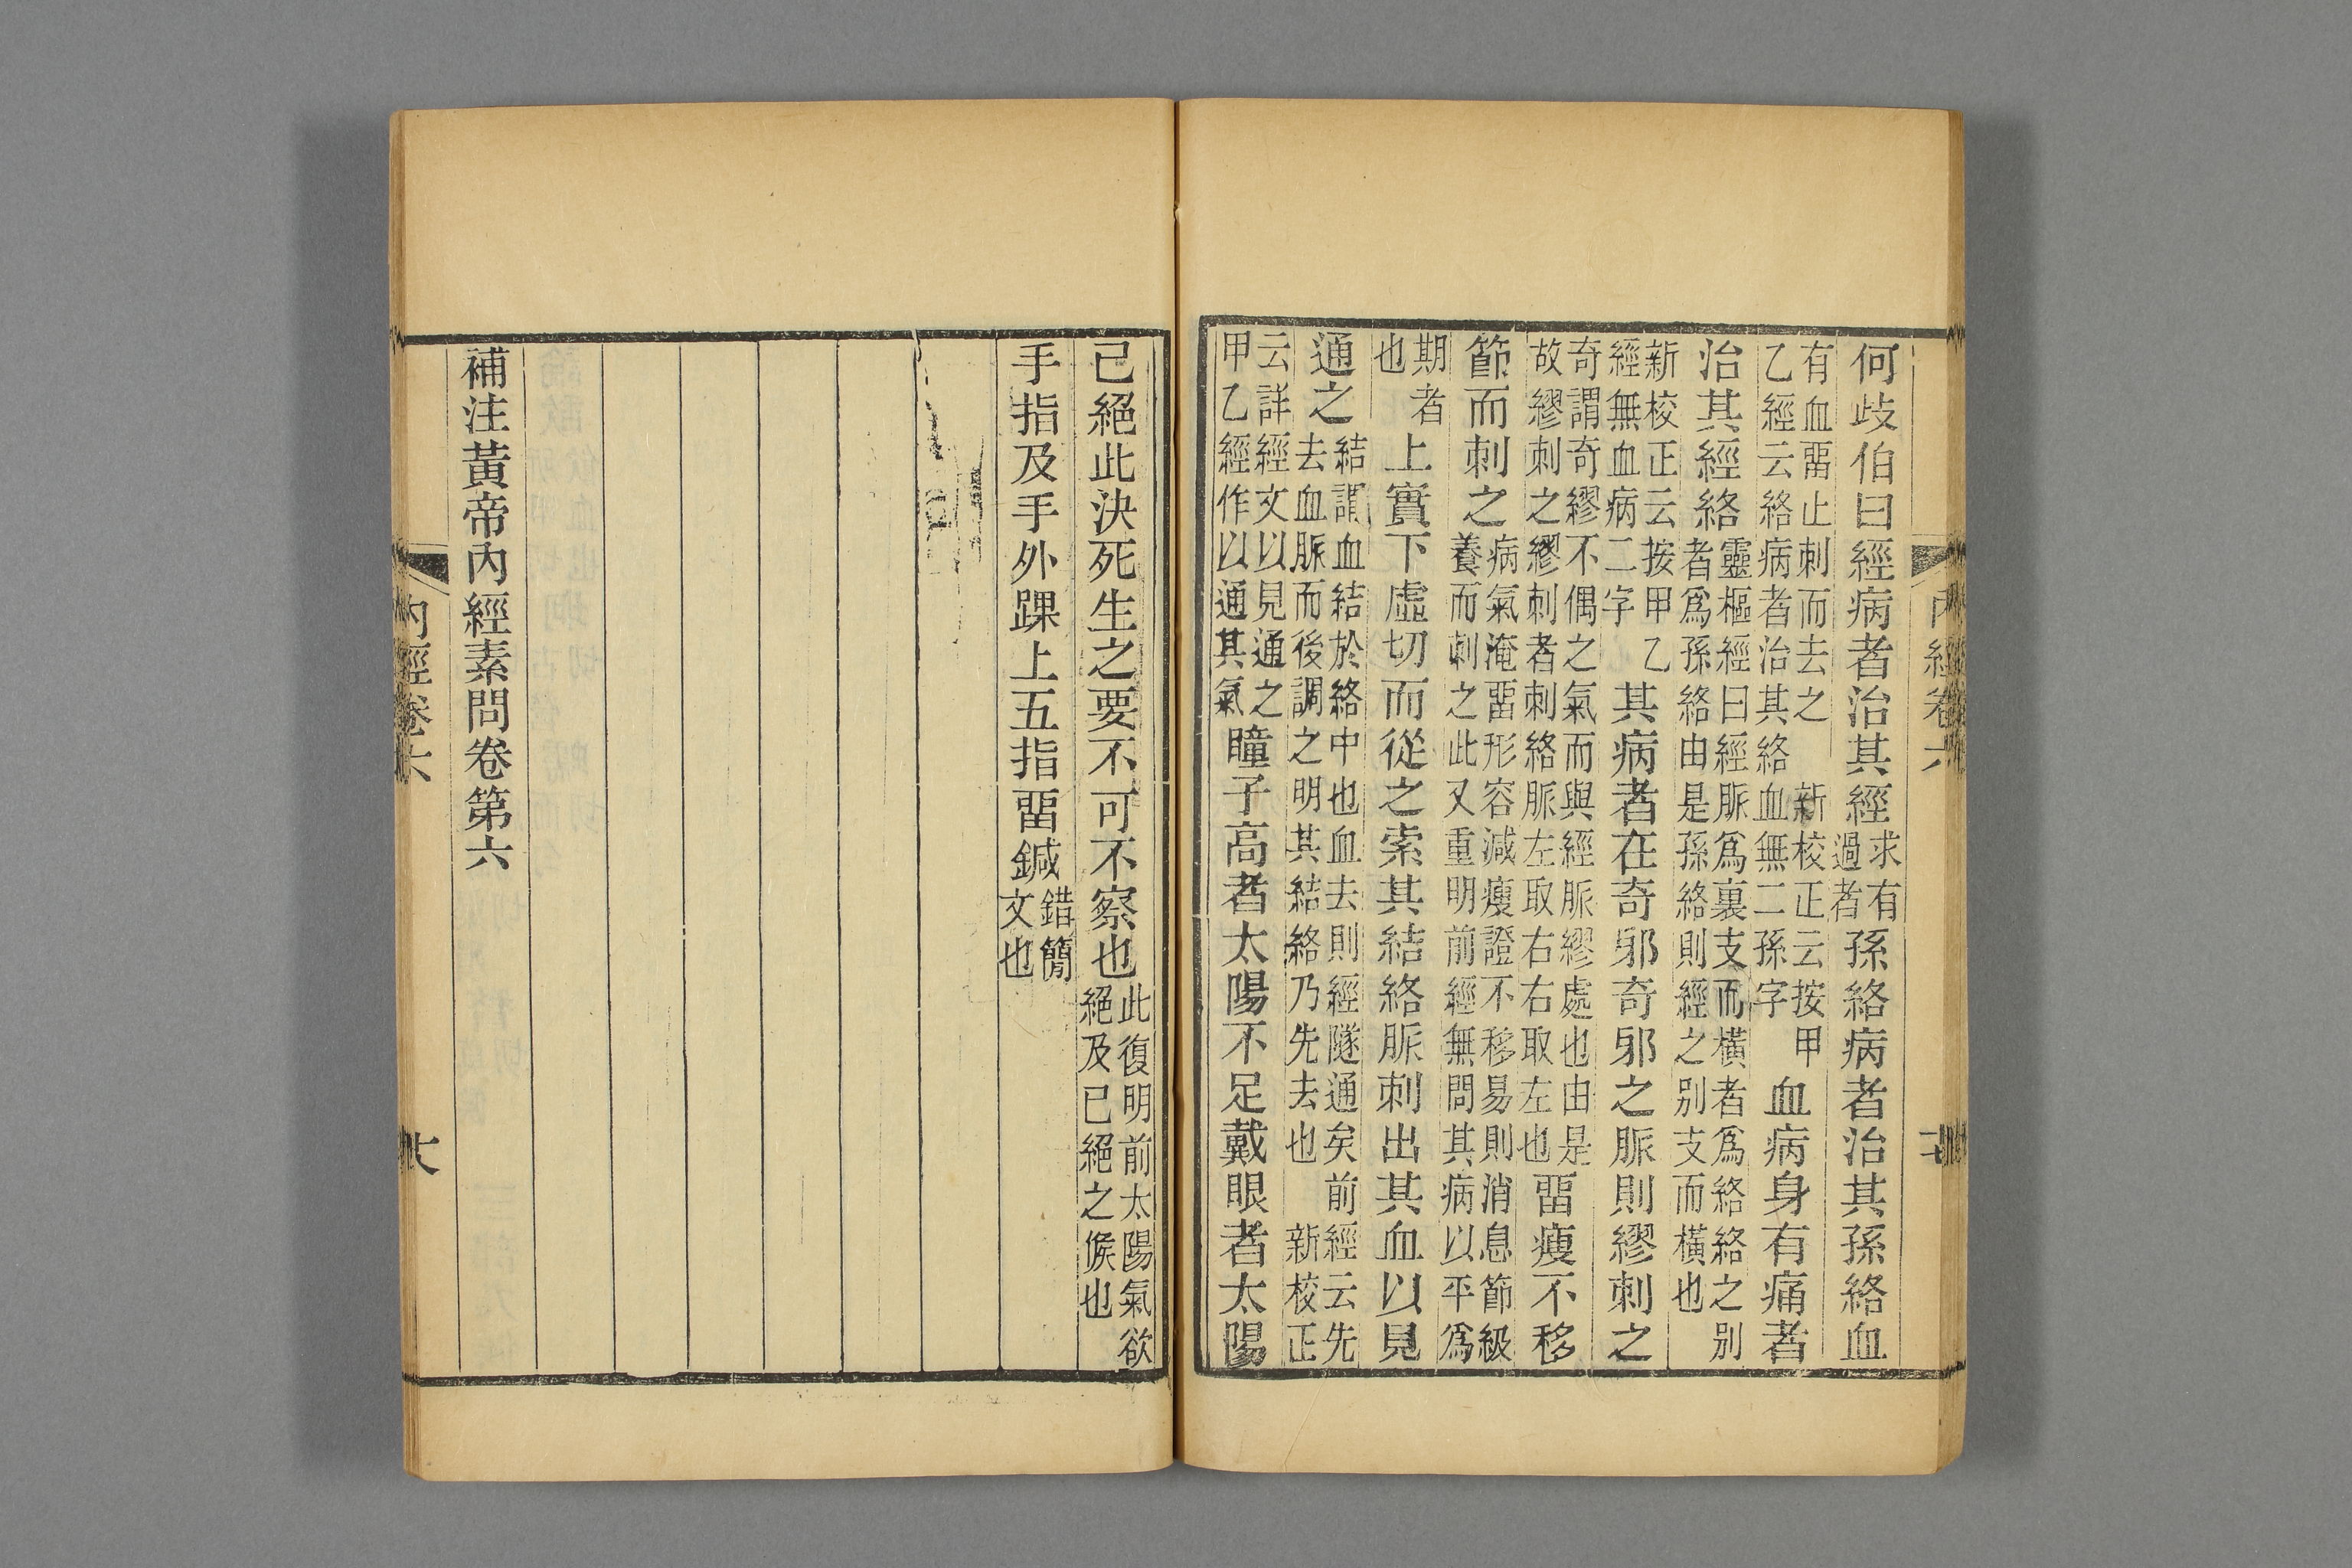 何歧伯曰經病者治其經求有過者孫絡病者治其孫絡血
有血畱止刺而去之　新校正云按甲乙經云絡病者治其絡血無二孫字血病身有痛者
治其經絡靈樞經曰經脈爲裏支而橫者爲絡絡之别者爲孫絡由是孫絡則經之别支而橫也
新校正云按甲乙經無血病二字其病者在奇邪奇邪之脈則繆刺之
奇謂奇繆不偶之氣而與經脈繆處也由是故繆刺之繆刺者刺絡脈左取右右取左也畱瘦不移
節而刺之病氣淹畱形容減瘦證不移易則消息節級養而刺之此又重明前經無問其病以平爲
期者也上實下虛切而從之索其結絡脈刺出其血以見
通之結謂血結於絡中也血去則經隧通矣前經云先去血脈而後調之明其結絡乃先去也　新校正
云詳經文以見通之甲乙經作以通其氣瞳子高者太陽不足戴眼者太陽
已絕此決死生之要不可不察也此復明前太陽氣欲絕及已絕之候也
手指及手外踝上五指畱鍼錯簡文也
補注黃帝內經素問卷第六
內經卷六